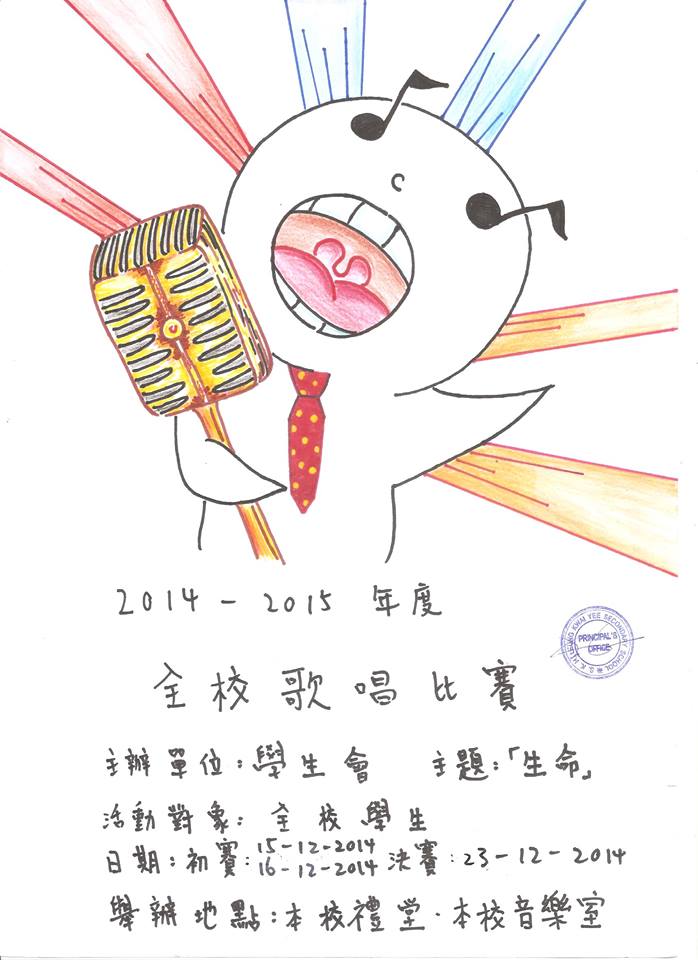 2014 - 2015 年度
全校歌唱比賽
主辦單位：學生會 主題：「生命」
活動對象：全校學生
日期：初賽：15-12-2014 16-12-2014 決賽：23-12-2014
舉辦地點：本校禮堂．本校音樂室
S.K.H. LEUNG KWAI YEE SECONDARY SCHOOL
PRINCIPAL'S
OFFICE